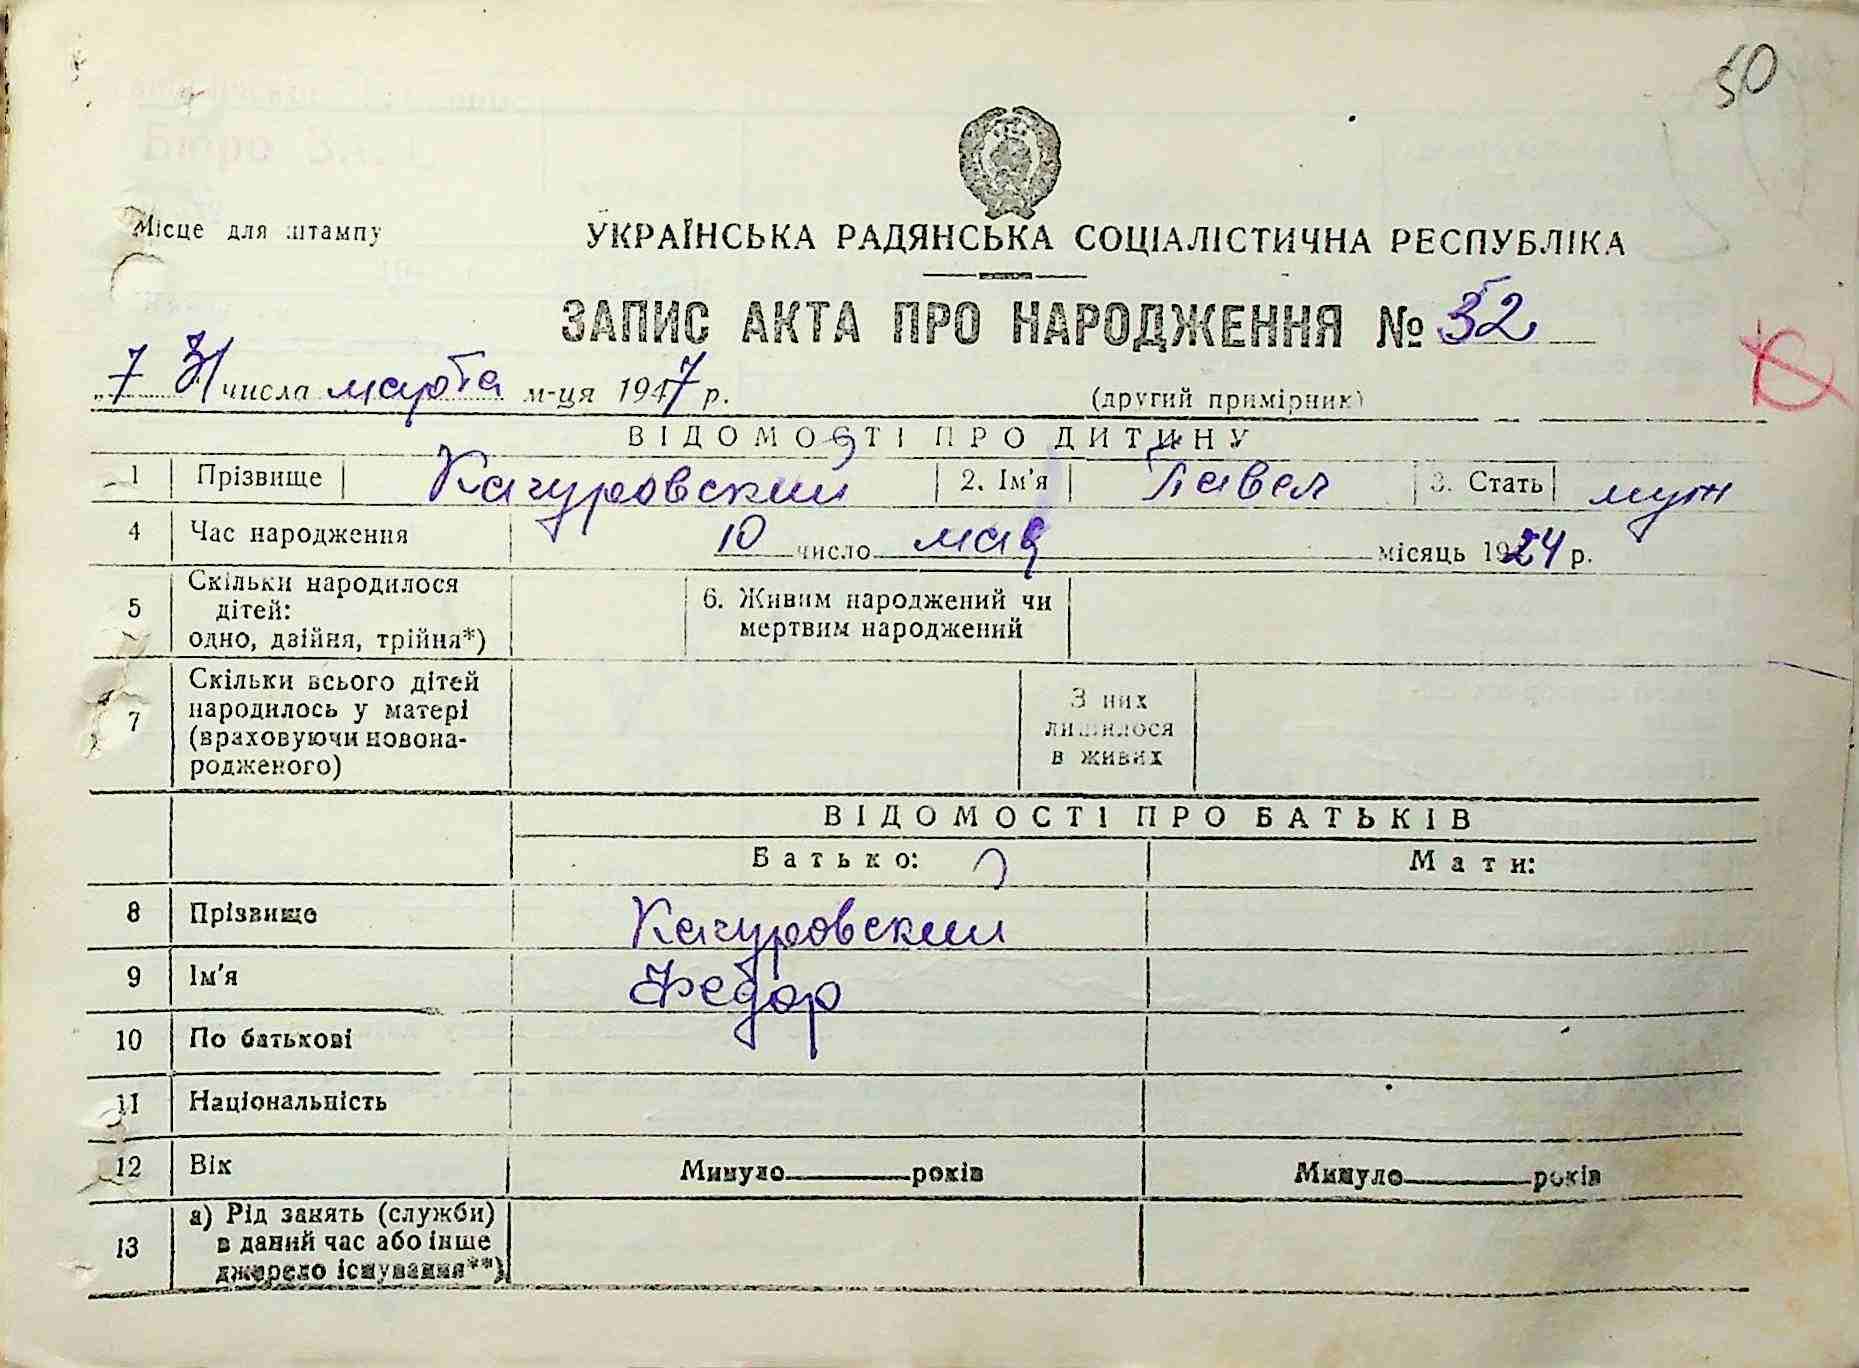 50
Місце для штампу
УКРАЇНСЬКА РАДЯНСЬКА СОЦІАЛІСТИЧНА РЕСПУБЛІКА
ЗАПИС АКТА ПРО НАРОДЖЕННЯ № 52
" 7 31 числа марта м-ця 1947 р. (другий примірник)
ВІДОМОСТІ ПРО ДИТИНУ
1 Прізвище Качуровский 2. Ім'я Павел 3. Стать муж
4 Час народження 10 число мая місяць 1924 р.
5 Скільки народилося дітей: одно, двійня, трійня*) 6. Живим народжений чи мертвим народжений
7 Скільки всього дітей народилось у матері (враховуючи новонародженого) З них лишилося в живих
ВІДОМОСТІ ПРО БАТЬКІВ
Батько: Мати:
8 Прізвище Качуровский
9 Ім'я Федор
10 По батькові
11 Національність
12 Вік Минуло років Минуло років
13 а) Рід занять (служби) в даний час або інше джерело існування**)